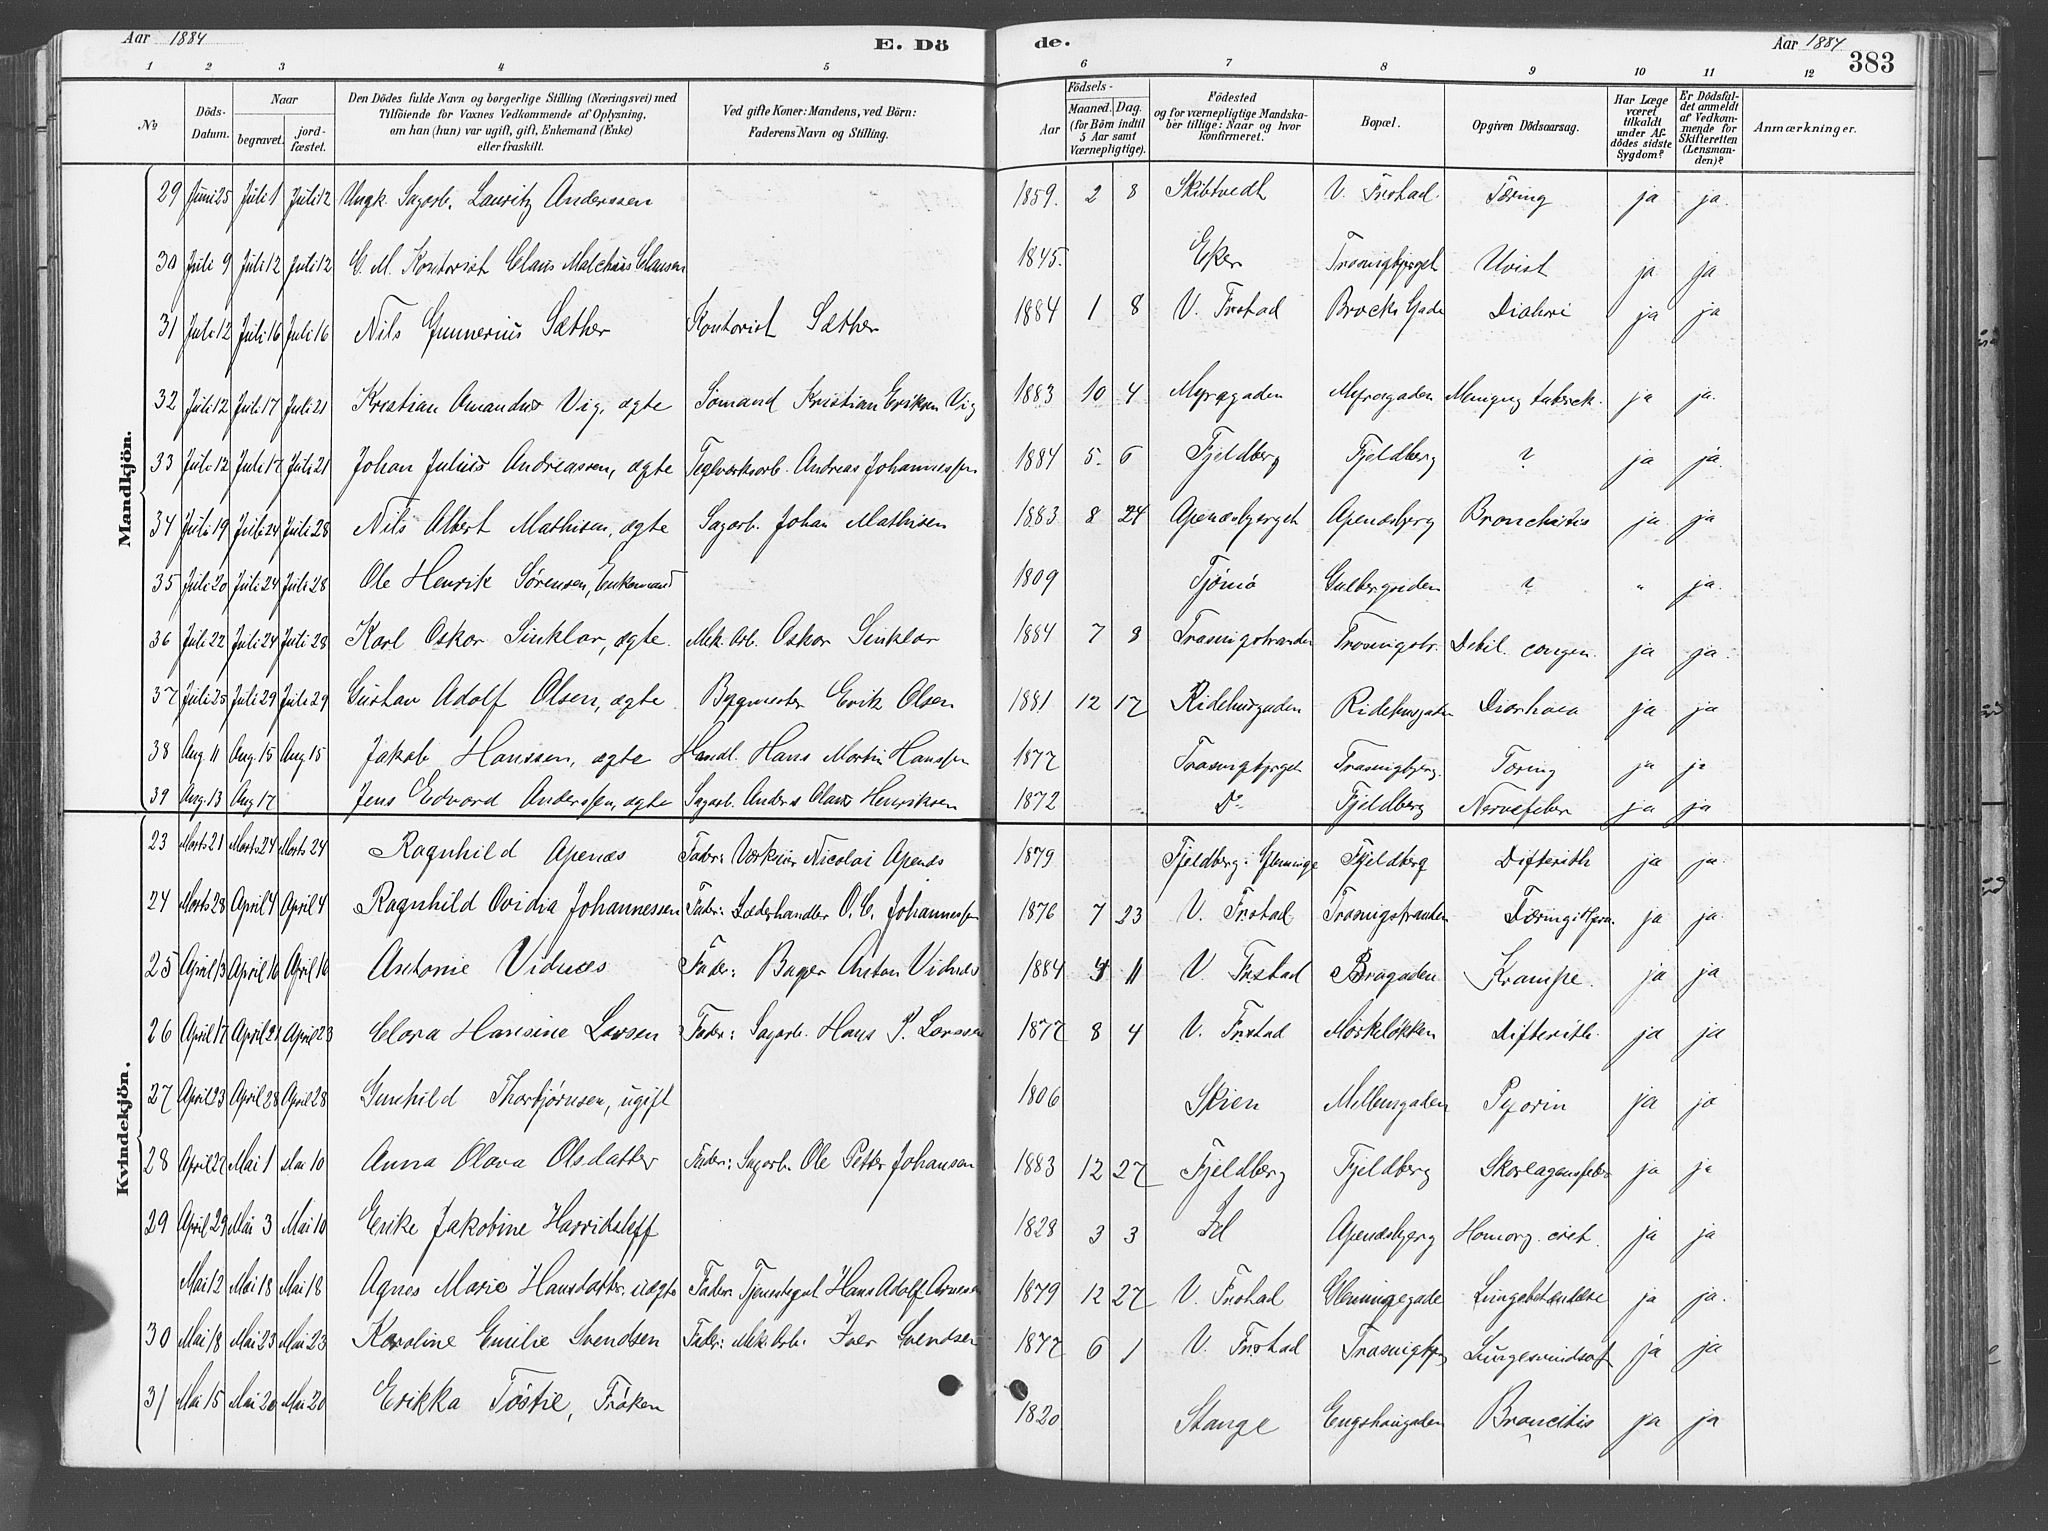 Aar 1884 E. Dö de. Aar 1884 383
1 2 3 4 5 6 7 8 9 10 11 12
№ Döds-Datum. Naar begravet. jord-fæstet. Den Dödes fulde Navn og borgerlige Stilling (Næringsvei) med Tilföiende for Voxnes Vedkommende af Oplysning, om han (hun) var ugift, gift, Enkemand (Enke) eller fraskilt. Ved gifte Koner: Mandens, ved Börn: Faderens Navn og Stilling. Aar Födsels- Maaned. Dag. (for Börn indtil 5 Aar samt Værnepligtige). Födested og for værnepligtige Mandskaber tillige: Naar og hvor konfirmeret. Bopæl. Opgiven Dödsaarsag. Har Læge været tilkaldt under Afdödes sidste Sygdom? Er Dödsfaldet anmeldt af Vedkommende for Skifteretten (Lensmanden)? Anmærkninger.
Mandkjön.
29 Juni 25 Juli 1 Juli 12 Ungk. Sagarb. Lauritz Anderssen 1859. 2 8 Skibtvedt V. Frstad. Tæring ja ja.
30 Juli 9 Juli 12 Juli 12 E. M. Kontorist Claus Malchius Clausen 1845. Eker Trosvigbjerget Uvist ja ja
31 Juli 12 Juli 16 Juli 16 Nils Gunnerius Sæther Kontorist Sæther 1884 1 8 V. Frstad Brochs Gade ja ja
32 Juli 12 Juli 17 Juli 21 Kristian Amandus Vig, ægte Sömand Kristian Eriksen Vig 1883 10 4 Myragaden Myragaden ja ja.
33 Juli 12 Juli 17 Juli 21 Johan Julius Andreassen, ægte Teglværksarb. Andreas Johannessen 1884 5. 6 Fjeldberg Fjeldberg ? ja ja.
34 Juli 19 Juli 24 Juli 28 Nils Albert Mathisen, ægte Sagarb. Johan Mathisen 1883 8 24 Apenæsbjerget Apenæsbjerg Bronchitis ja ja
35 Juli 20 Juli 24 Juli 28 Ole Henrik Sørensen, Enkemand 1809 Tjømø ? " ja.
36 Juli 22 Juli 24 Juli 28 Karl Oskar Sinklar, ægte. Mek. Arb. Oskar Sinklar 1884 7 8 Trosvigstranden Trosvigstr. Debil. congen. ja ja.
37 Juli 25 Juli 29 Juli 29 Gustav Adolf Olsen, ægte Bygmester Erik Olsen 1881 12 17 Ridehusgaden Ridehusgaden Diarhoea ja ja
38 Aug 11 Aug. 15 Aug 15 Jakob Hanssen, ægte Handl. Hans Martin Hanssen 1877 Trosvigbjrget Trosvigbjerg. Tæring ja ja
39 Aug. 13 Aug 17 Jens Edvard Anderssen, ægte Sagarb. Anders Olaus Henriksen 1872 Do Fjeldberg Nervefeber ja ja
Kvindekjön.
23 Marts 21 Marts 24 Marts 24 Ragnhild Apenæs Fader: Værkeier Nicolai Apenæs 1879 Fjeldberg i Glemminge Fjeldberg Difterith ja ja.
24 Marts 28 April 4 April 4 Ragnhild Ovidia Johannessen Fader: Læderhandler O. C. Johannessen 1876 7 23 V. Frstad. Trosvigstranden ja ja.
25 April 13 April 16 April 16 Antonie Vidnæs Fader: Bager Anton Vidnæs 1884 4 11 V. Frstad Brogaden Krampe. ja ja
26 April 17 April 21 April 23 Clara Hansine Larsen Fader: Sagarb. Hans P. Larssen 1877 8 4 V. Frstad Mørkeløkken Difterith. ja ja
27 April 23 April 28 April 28 Gunhild Thorbjørnsen, ugift 1806 Skien Mellemgaden ja ja
28 April 27 Mai 1 Mai 10 Anna Olava Olsdatter Fader: Sagarb. Ole Petter Johansen 1883 12 27 Fjeldberg Fjeldberg Skarlagensfeber ja ja
29 April 29 Mai 3 Mai 10 Erike Jakobine Harridsleff 1828 3 3 Id Apenæsbjerg ja ja
Mai 12 Mai 18 Mai 18 Agnes Marie Hansdatter, uægte Fader: Tjenestegut Hans Adolf Arnesen 1879 12 27 V. Frstad. Glemmegade Lungebetændelse ja ja.
30 Mai 18 Mai 23 Mai 23 Karoline Emilie Svendsen Fader: Mek. Arb. Iver Svendsen 1877 6 1 V. Frstad Trosvigbjrg Lungesvindsot ja ja
31 Mai 15 Mai 20 Mai 20 Erikka Tøstie, Frøken 1820 Stange Enghaugaden Broncitis ja ja